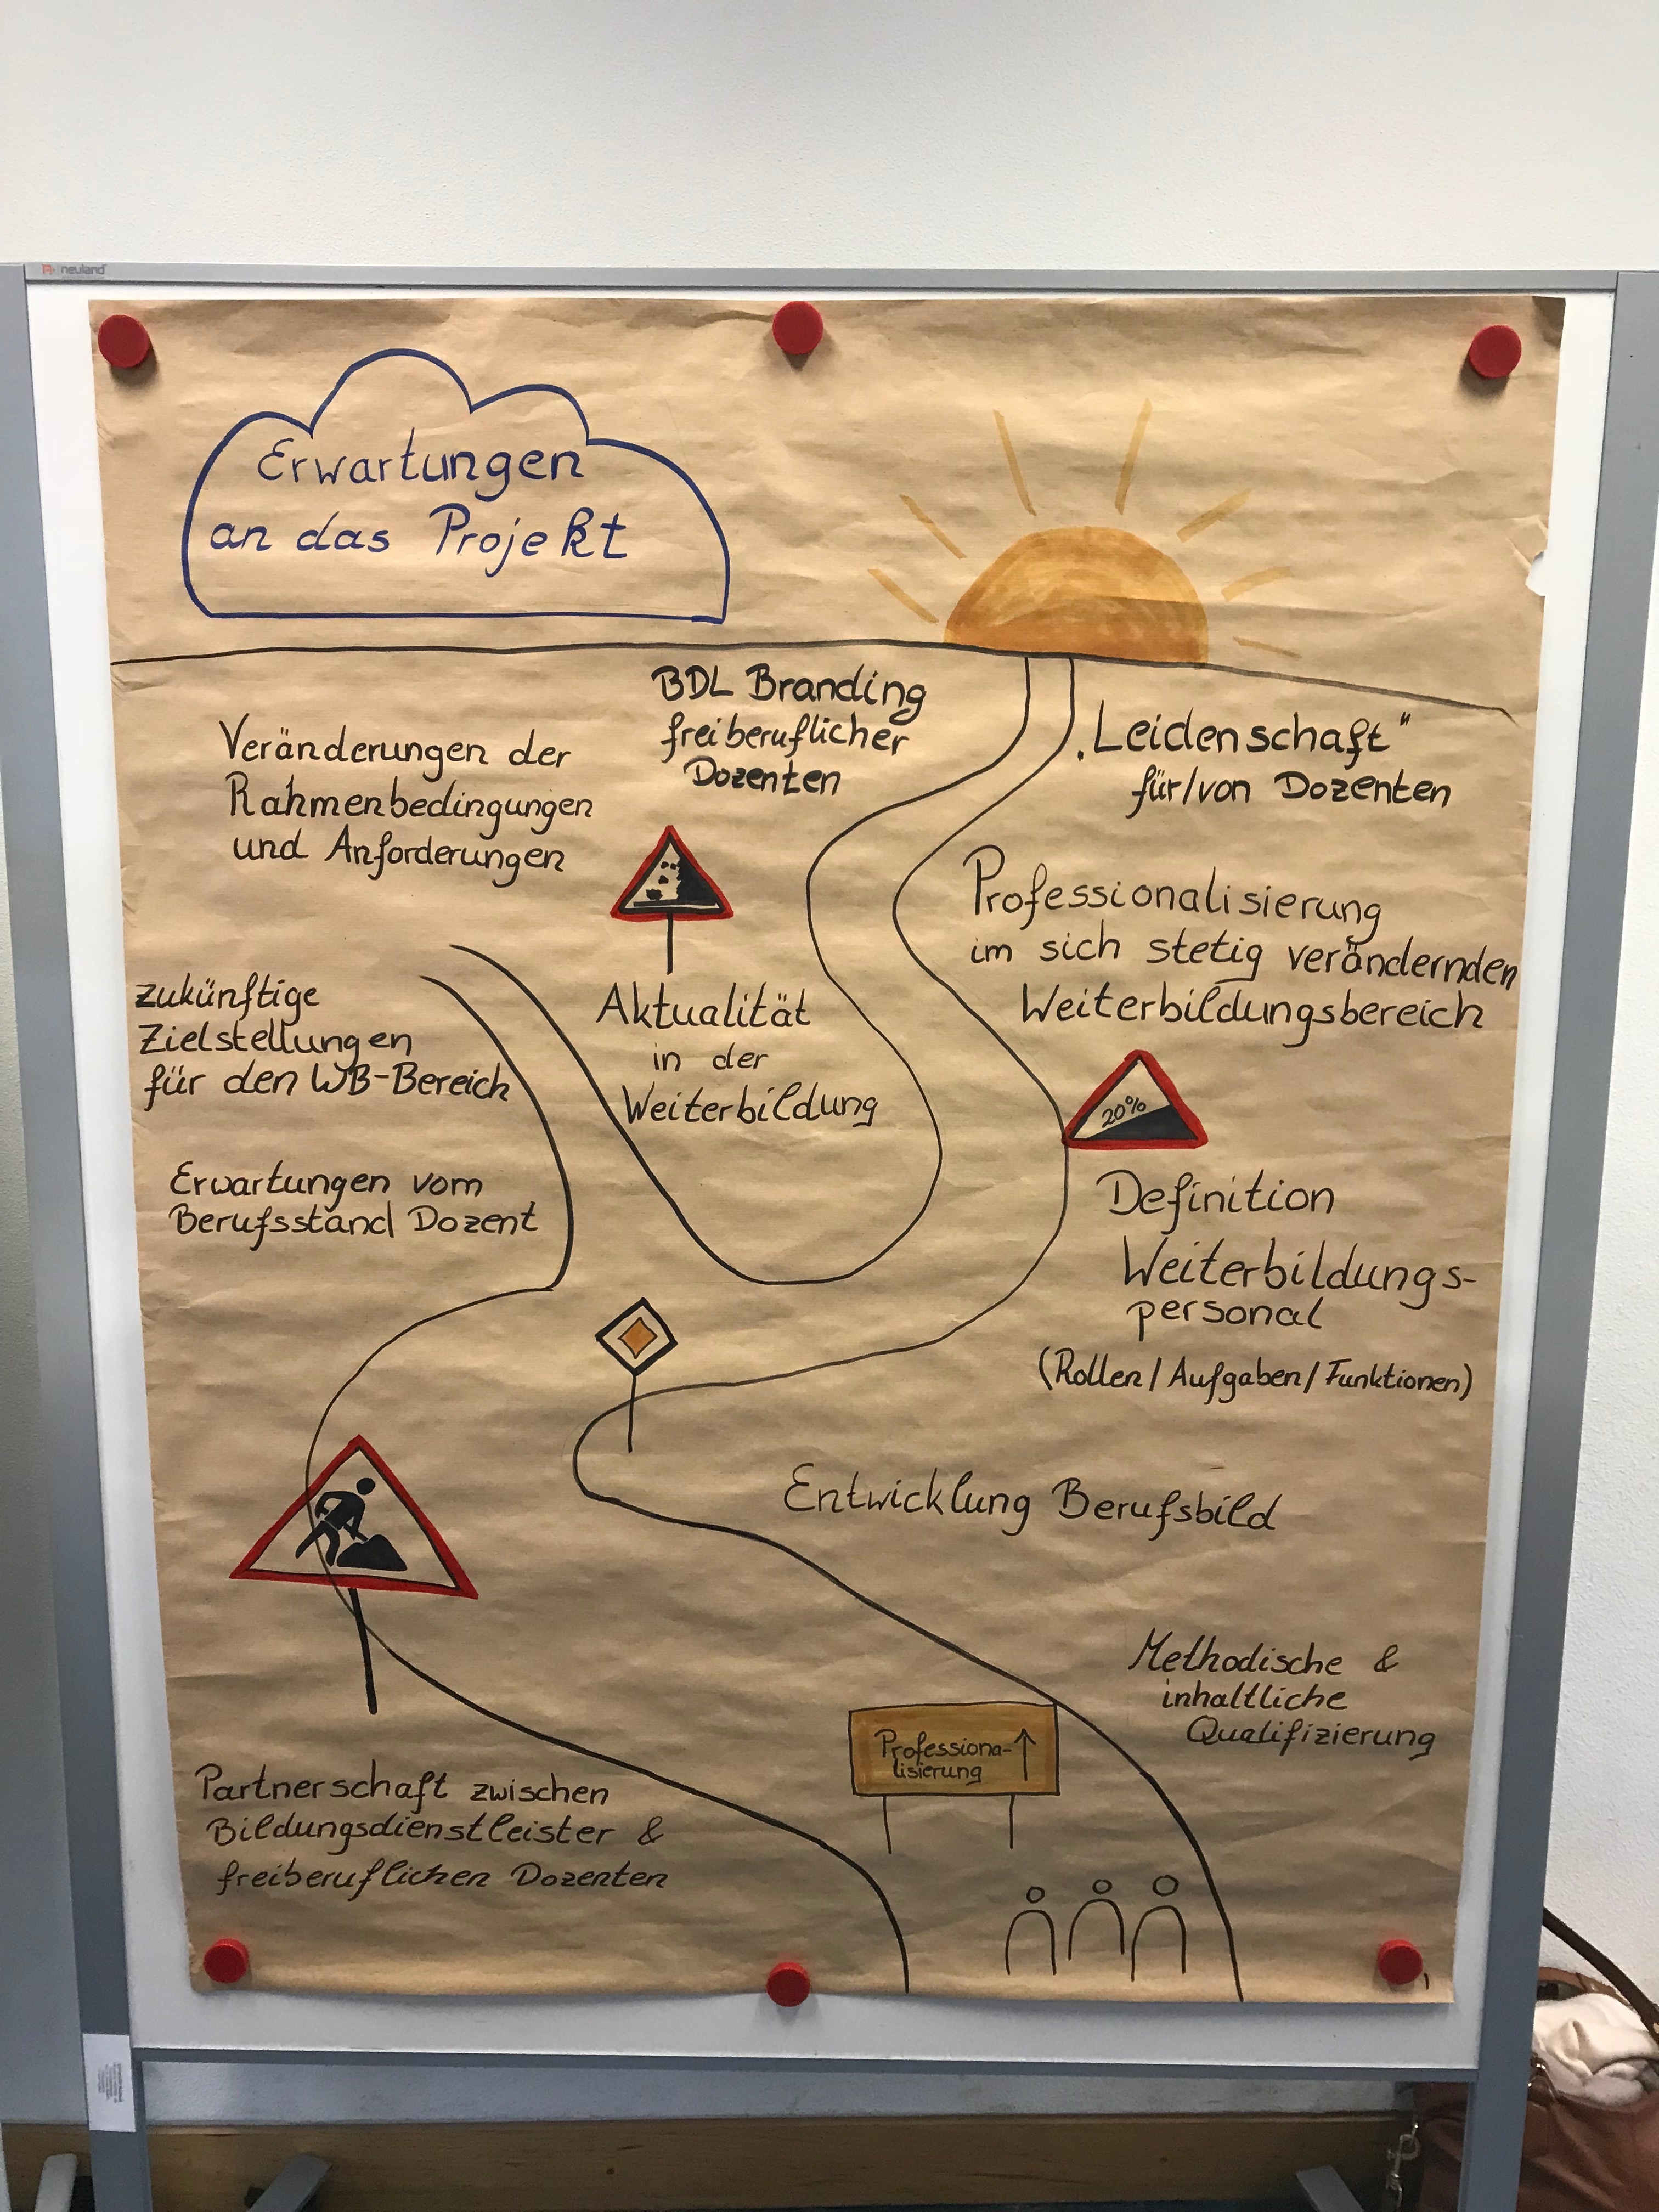 neuland
Erwartungen
an das Projekt
BDL Branding
freiberuflicher
Dozenten
„Leidenschaft"
für/von Dozenten
Veränderungen der
Rahmenbedingungen
und Anforderungen
Professionalisierung
im sich stetig verändernden
Weiterbildungsbereich
zukünftige
Zielstellungen
für den WB-Bereich
Aktualität
in der
Weiterbildung
20%
Erwartungen vom
Berufsstand Dozent
Definition
Weiterbildungs-
personal
(Rollen/Aufgaben/Funktionen)
Entwicklung Berufsbild
Methodische &
inhaltliche
Qualifizierung
Professiona-
lisierung
Partnerschaft zwischen
Bildungsdienstleister &
freiberuflichen Dozenten